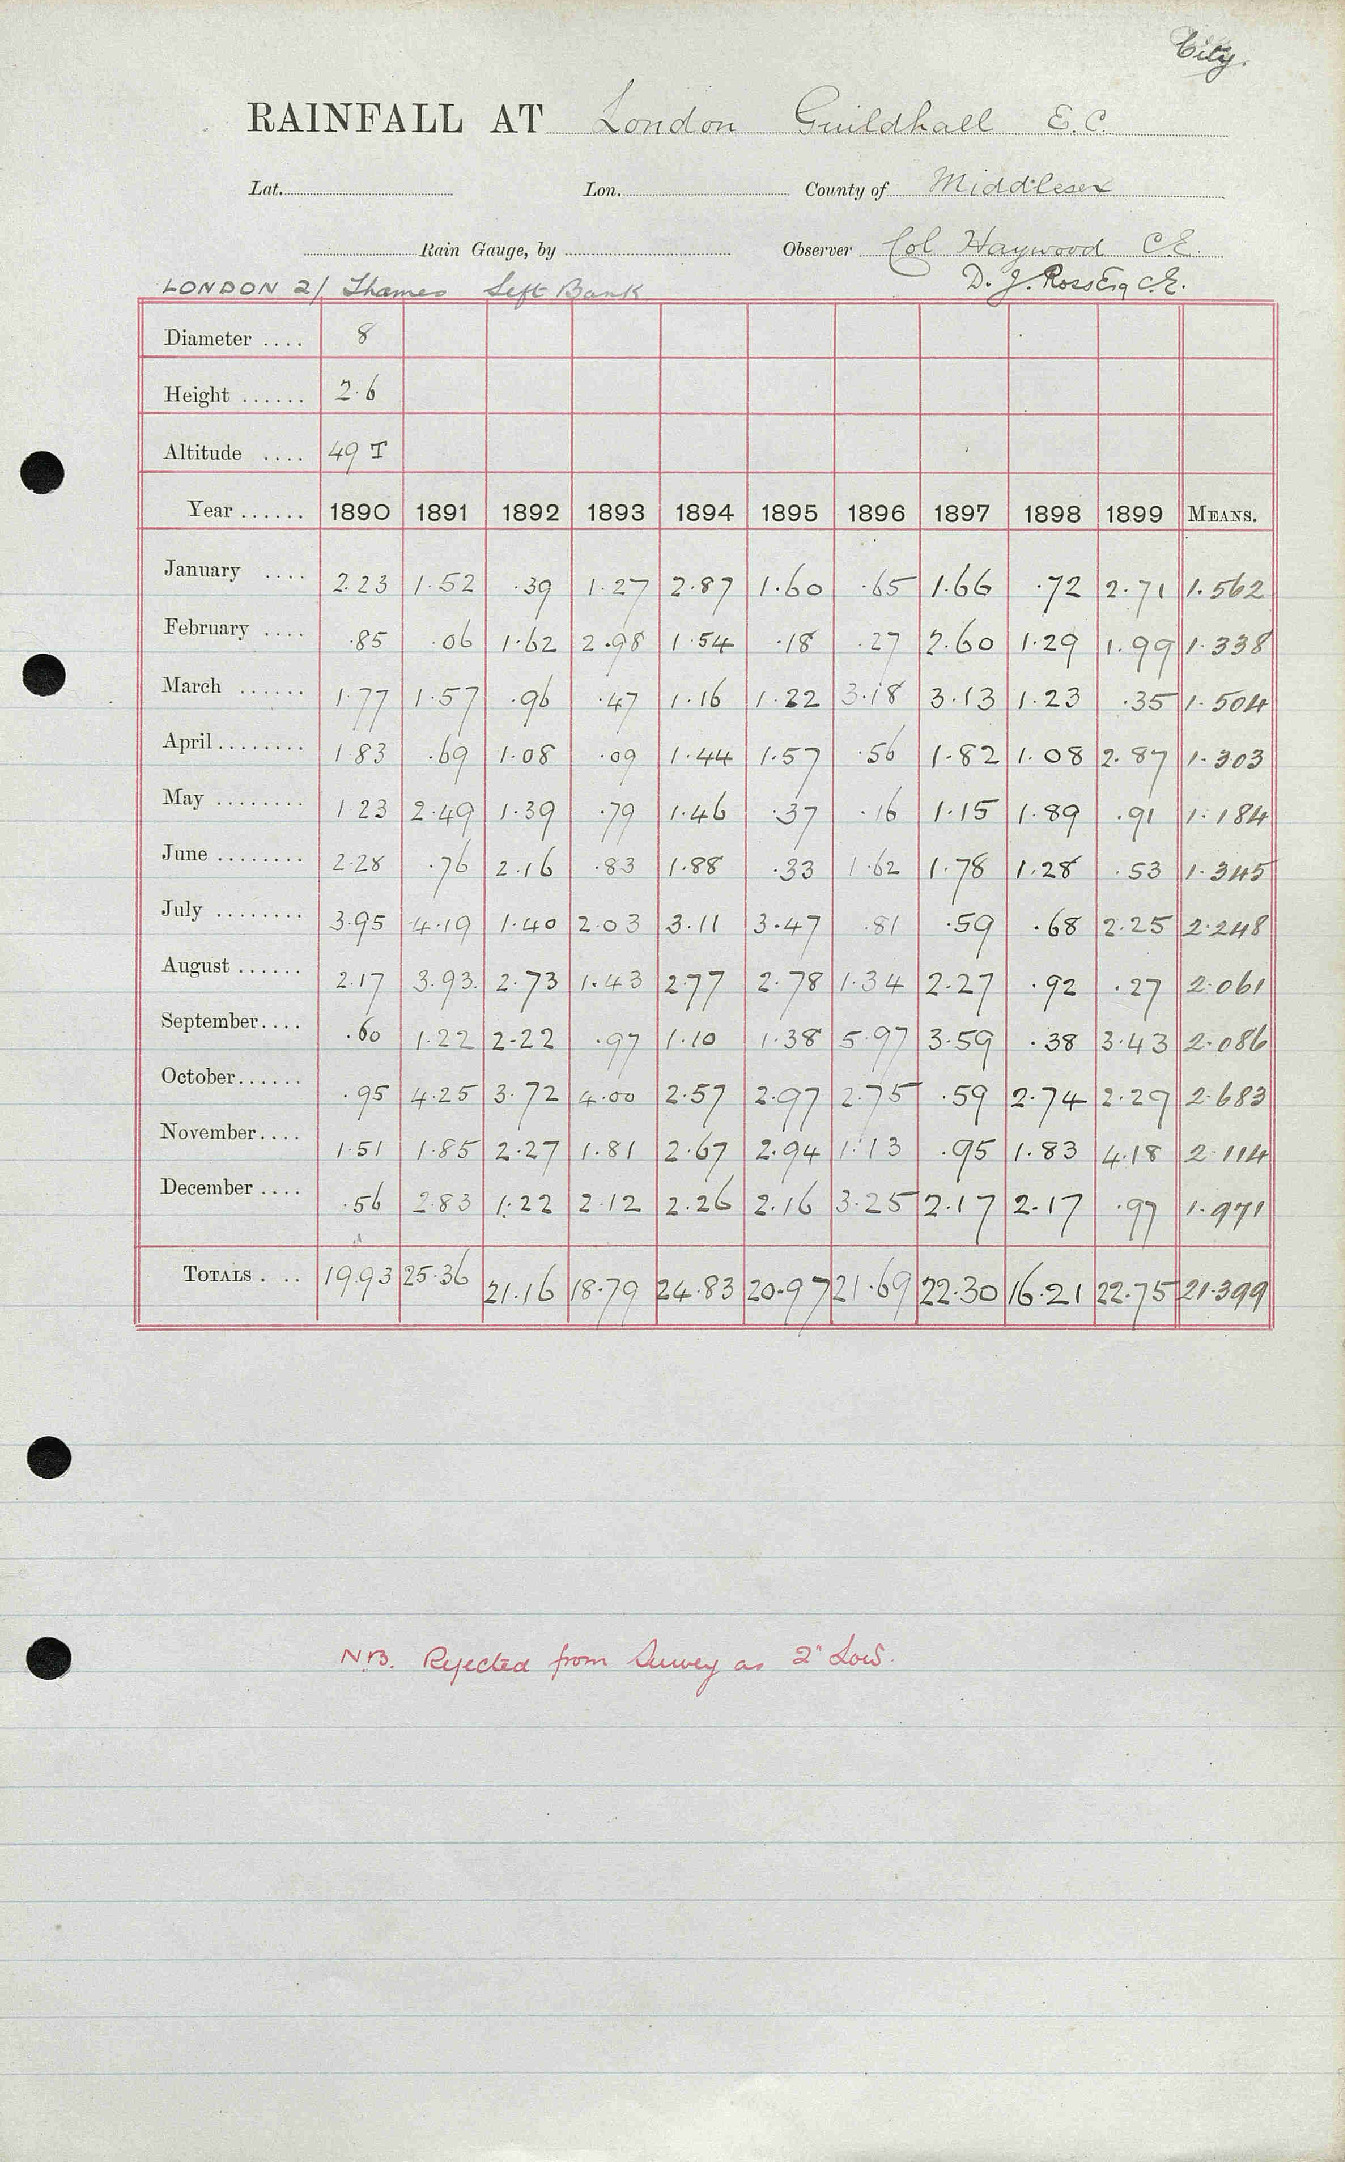 City.
RAINFALL AT London Guildhall E.C.
Lat. Lon. County of Middlesex
Rain Gauge, by Observer Col Haywood C.E.
LONDON 2/ Thames Left Bank D. J. Ross Esq C.E.
Diameter .... 8
Height ...... 2.6
Altitude .... 49 T
Year ...... 1890 1891 1892 1893 1894 1895 1896 1897 1898 1899 MEANS.
January .... 2.23 1.52 .39 1.27 2.87 1.60 .65 1.66 .72 2.71 1.562
February .... .85 .06 1.62 2.98 1.54 .18 .27 2.60 1.29 1.99 1.338
March ...... 1.77 1.57 .96 .47 1.16 1.22 3.18 3.13 1.23 .35 1.504
April ........ 1 83 .69 1.08 .09 1.44 1.57 .56 1.82 1.08 2.87 1.303
May ........ 1 23 2.49 1.39 .79 1.46 .37 .16 1.15 1.89 .91 1.184
June ........ 2.28 .76 2.16 .83 1.88 .33 1.62 1.78 1.28 .53 1.345
July ........ 3.95 4.19 1.40 2.03 3.11 3.47 .81 .59 .68 2.25 2.248
August ...... 2.17 3.93 2.73 1.43 2.77 2.78 1.34 2.27 .92 .27 2.061
September .... .60 1.22 2.22 .97 1.10 1.38 5.97 3.59 .38 3.43 2.086
October ...... .95 4.25 3.72 4.00 2.57 2.97 2.75 .59 2.74 2.29 2.683
November .... 1.51 1.85 2.27 1.81 2.67 2.94 1.13 .95 1.83 4.18 2.114
December .... .56 2.83 1.22 2.12 2.26 2.16 3.25 2.17 2.17 .97 1.971
TOTALS . .. 19.93 25.36 21.16 18.79 24.83 20.97 21.69 22.30 16.21 22.75 21.399
NB. Rejected from Survey as 2" Low.